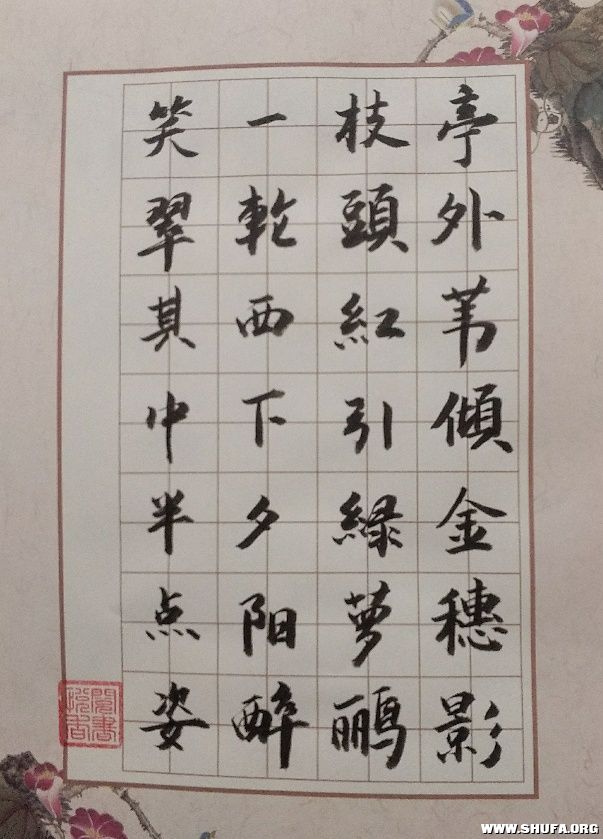 亭外苇傾金穗影
枝頭紅引緑萝鹂
一轮西下夕阳醉
笑翠其中半点姿
WWW.SHUFA.ORG